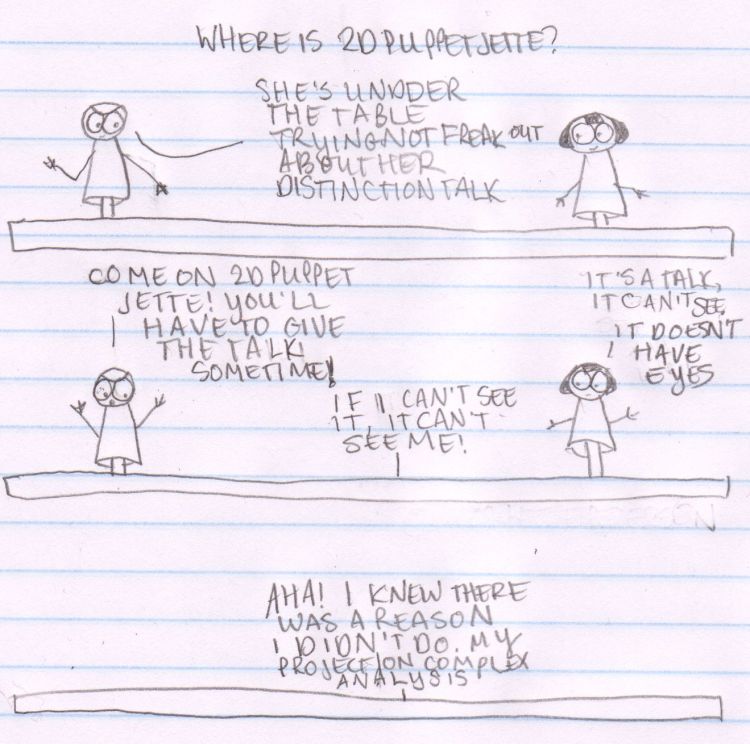 WHERE IS 2D PUPPETJETTE?
SHE'S UNDDER
THE TABLE
TRYING NOT FREAK OUT
ABOUT HER
DISTINCTION TALK
COME ON 2D PUPPET
JETTE! YOU'LL
HAVE TO GIVE
THE TALK
SOMETIME!
IF I CAN'T SEE
IT, IT CAN'T
SEE ME!
IT'S A TALK,
IT CAN'T SEE,
IT DOESN'T
HAVE
EYES
AHA! I KNEW THERE
WAS A REASON
I DIDN'T DO MY
PROJECT ON COMPLEX
ANALYSIS